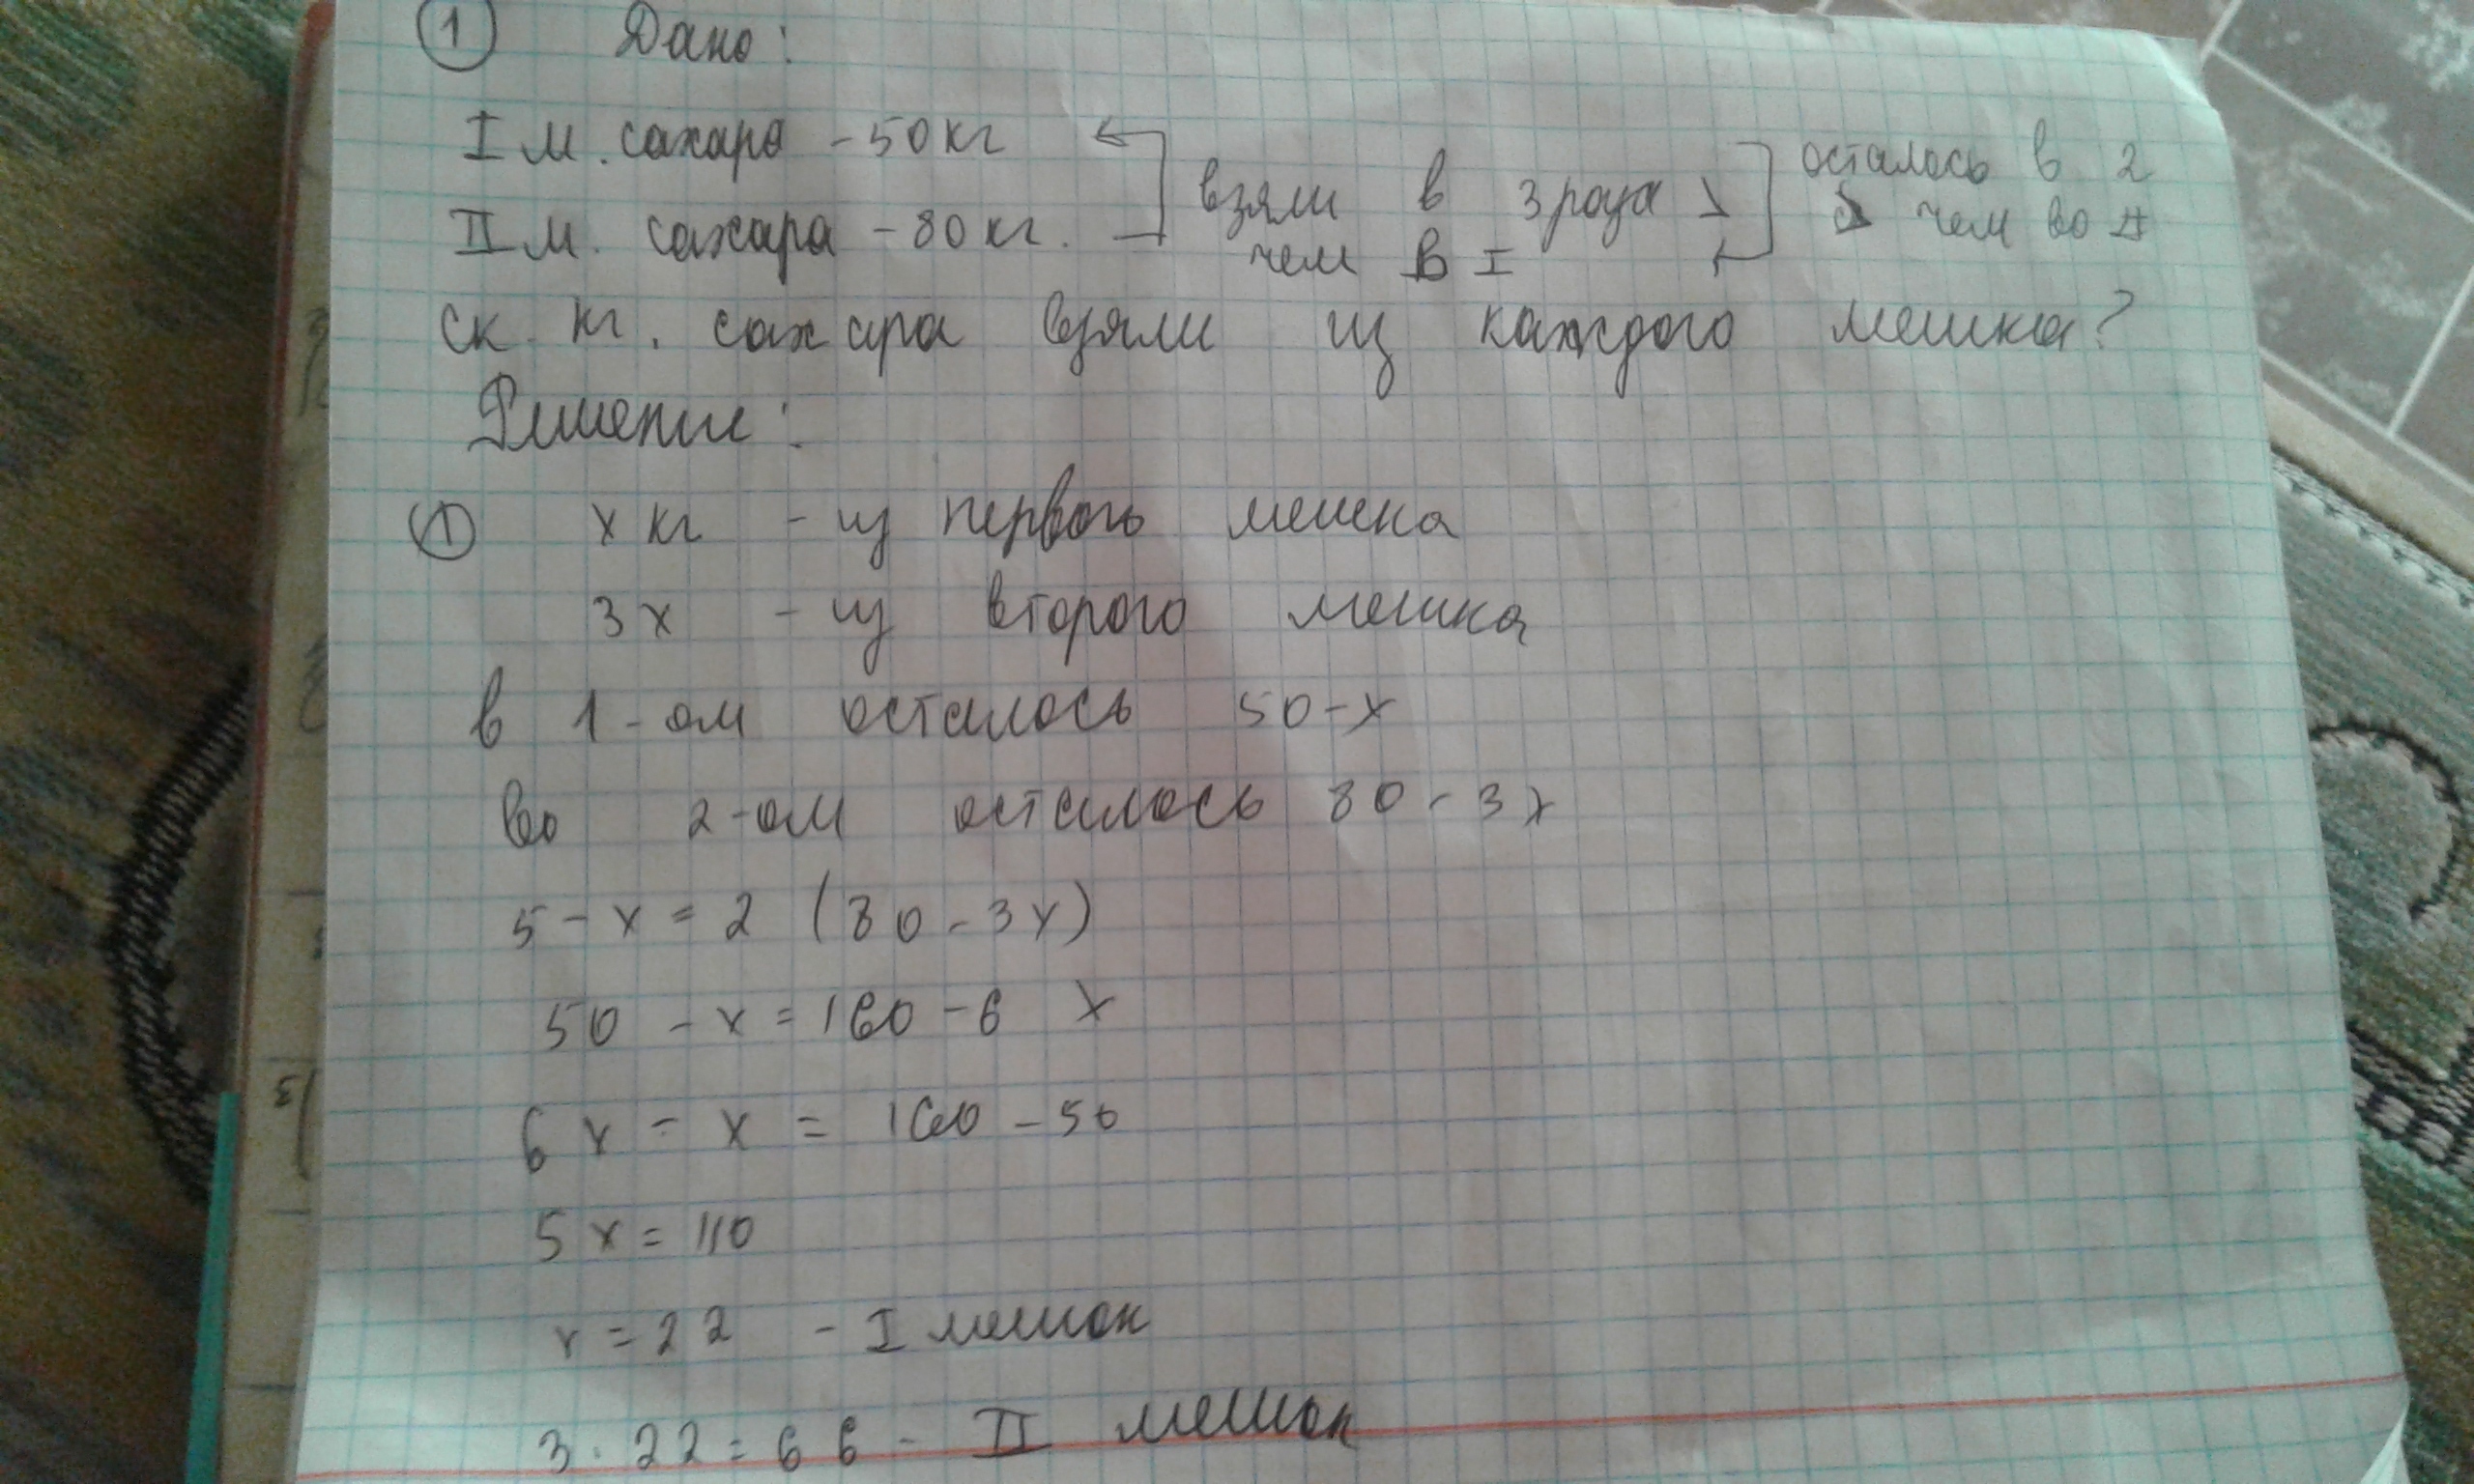 ① Дано:
I м. сахара - 50 кг
II м. сахара - 80 кг.
взяли в 3 раза >
чем в I
осталось в 2
> чем во II
ск. кг. сахара взяли из каждого мешка?
Решение:
① x кг - из первого мешка
3x - из второго мешка
в 1-ом осталось 50-x
во 2-ом осталось 80-3x
5-x=2 (80-3x)
50-x=160-6 x
6x-x=160-50
5x=110
x=22 - I мешок
3·22=66- II мешок